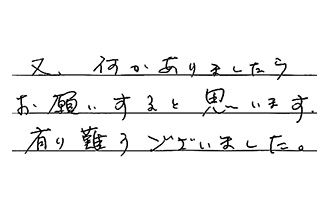 又、何かありましたら
お願いすると思います.
有り難うございました。